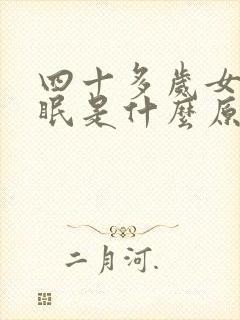 四十多歲女
眠是什麼原
二月河.